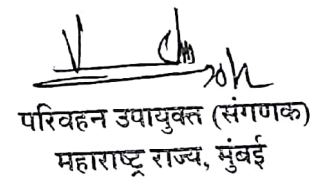 परिवहन उपायुक्त (संगणक)
महाराष्ट्र राज्य, मुंबई